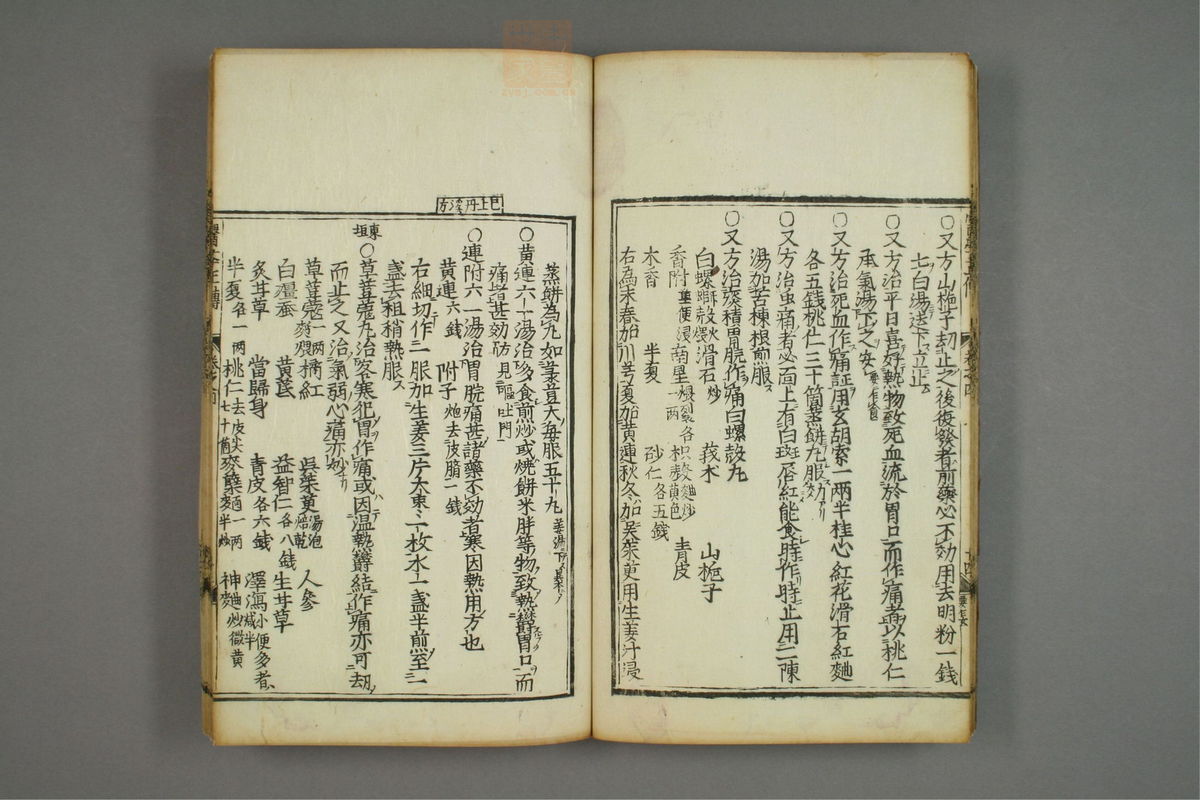 ○又方山梔子劫止之後復發者前藥必不効用玄明粉一錢
七白湯送下立止
○又方治平日喜好熱物致死血流於胃口而作痛者以桃仁
承氣湯下之安
○又方治死血作痛証用玄胡索一兩半桂心紅花滑石紅麯
各五錢桃仁三十箇蒸餅丸服
○又方治虫痛者必面上有白斑唇紅能食時作時止用二陳
湯加苦棟根煎服
○又方治痰積胃脘作痛白螺殼丸
白螺螄殼火煅滑石炒 莪朮 山梔子
香附童便浸南星煨裂各一兩枳殼麩炒黄色 青皮
木香 半夏 砂仁各五錢
右為末春加川芎夏加黄連秋冬加吴茱萸用生姜汁浸
已上丹溪方
蒸餅為丸如菉豆大每服五十丸
○黄連六一湯治多食煎炒或燒餅米胖等物致熱欝胃口而
痛諸甚効方見嘔吐門
○連附六一湯治胃脘痛甚諸藥不効者寒因熱用方也
黄連六錢 附子炮去皮臍一錢
右細切作一服加生姜三片大棗一枚水一盞半煎至一
盞去柤稍熱服
東垣
○草荳蔻丸治客寒犯胃作痛或因温熱欝結作痛亦可劫
而止之又治氣弱心痛亦妙
草荳蔻一兩麪煨 橘紅 吳茱萸湯泡焙乾 人參
白殭蚕 黄芪 益智仁各八錢 生甘草
炙甘草 當歸身 青皮各六錢 澤瀉小便多者減半
半夏各一兩 桃仁去皮尖七十箇 麥蘖麵一兩半炒 神麯炒微黄